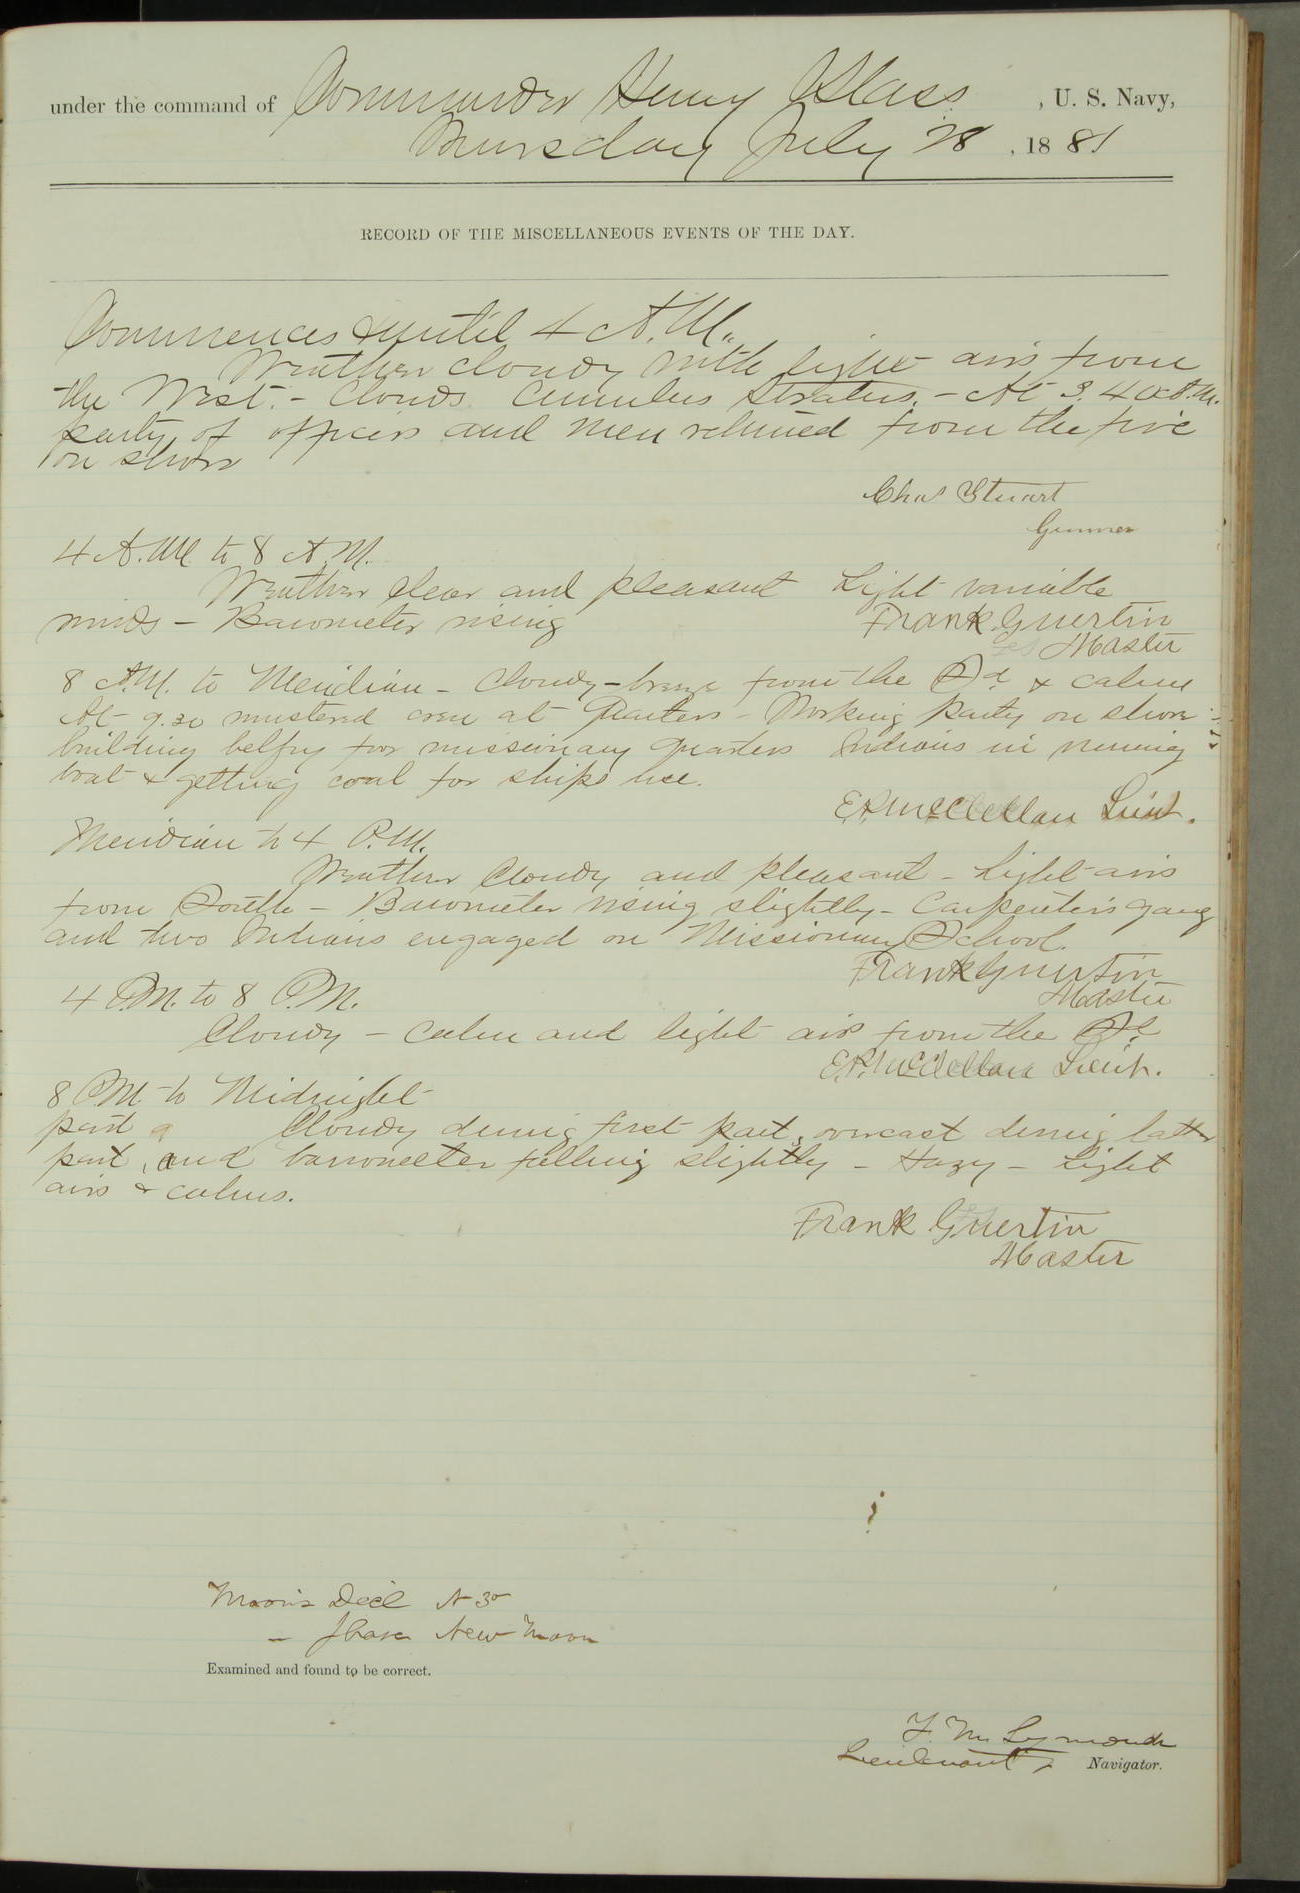 under the command of Commander Henry Glass, U. S. Navy,
Thursday July 28, 1881
RECORD OF THE MISCELLANEOUS EVENTS OF THE DAY.
Commences & until 4 A.M.
Weather cloudy with light airs from
the West. - Clouds Cumulus Stratus. - At 3.40 A.M.
party of officers and men returned from the fire
on shore
Chas Stuart
Gunner
4 A.M. to 8 A.M.
Weather clear and pleasant Light variable
winds - Barometer rising
Frank Guertin
Master
8 A.M. to Meridian - Cloudy - breeze from the Sd & calms
At 9.30 mustered crew at Quarters - Working party on shore
building belfry for missionary quarters Indians in running
boat & getting coal for ships use.
E.P. McClellan Lieut.
Meridian to 4 P.M.
Weather Cloudy and pleasant - Light airs
from South - Barometer rising slightly - Carpenter's gang
and two Indians engaged on Missionary School.
Frank Guertin
Master
4 P.M. to 8 P.M.
Cloudy - calm and light airs from the Sd
E.P. McClellan Lieut.
8 P.M. to Midnight
part Cloudy during first part, overcast during latter
part, and barometer falling slightly - Hazy - Light
airs & calms.
Frank Guertin
Master
Moon's Decl N 30
- Phase New Moon
Examined and found to be correct.
F. M. Symonds
Lieutenant, Navigator.